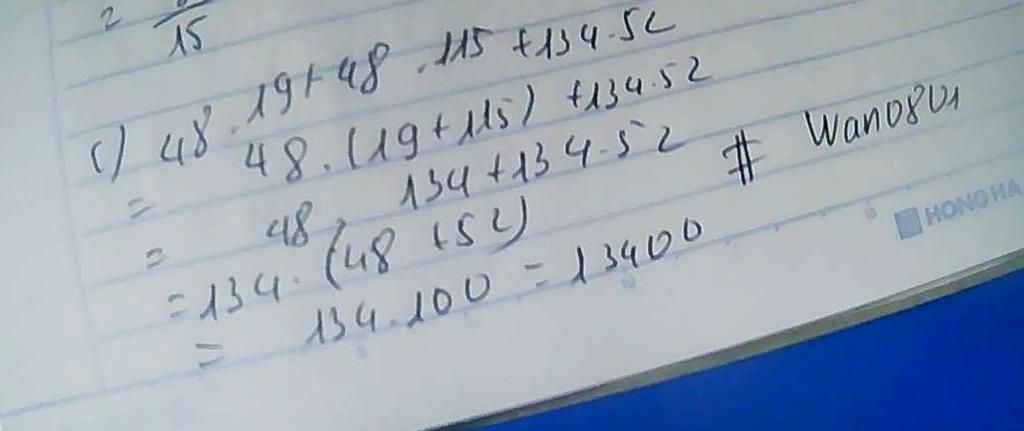 2 15
c) 48.19+48.115+134.52
= 48.(19+115)+134.52
= 48.134+134.52
=134.(48+52)
= 134.100=13400
# Wan0801
HONG HA